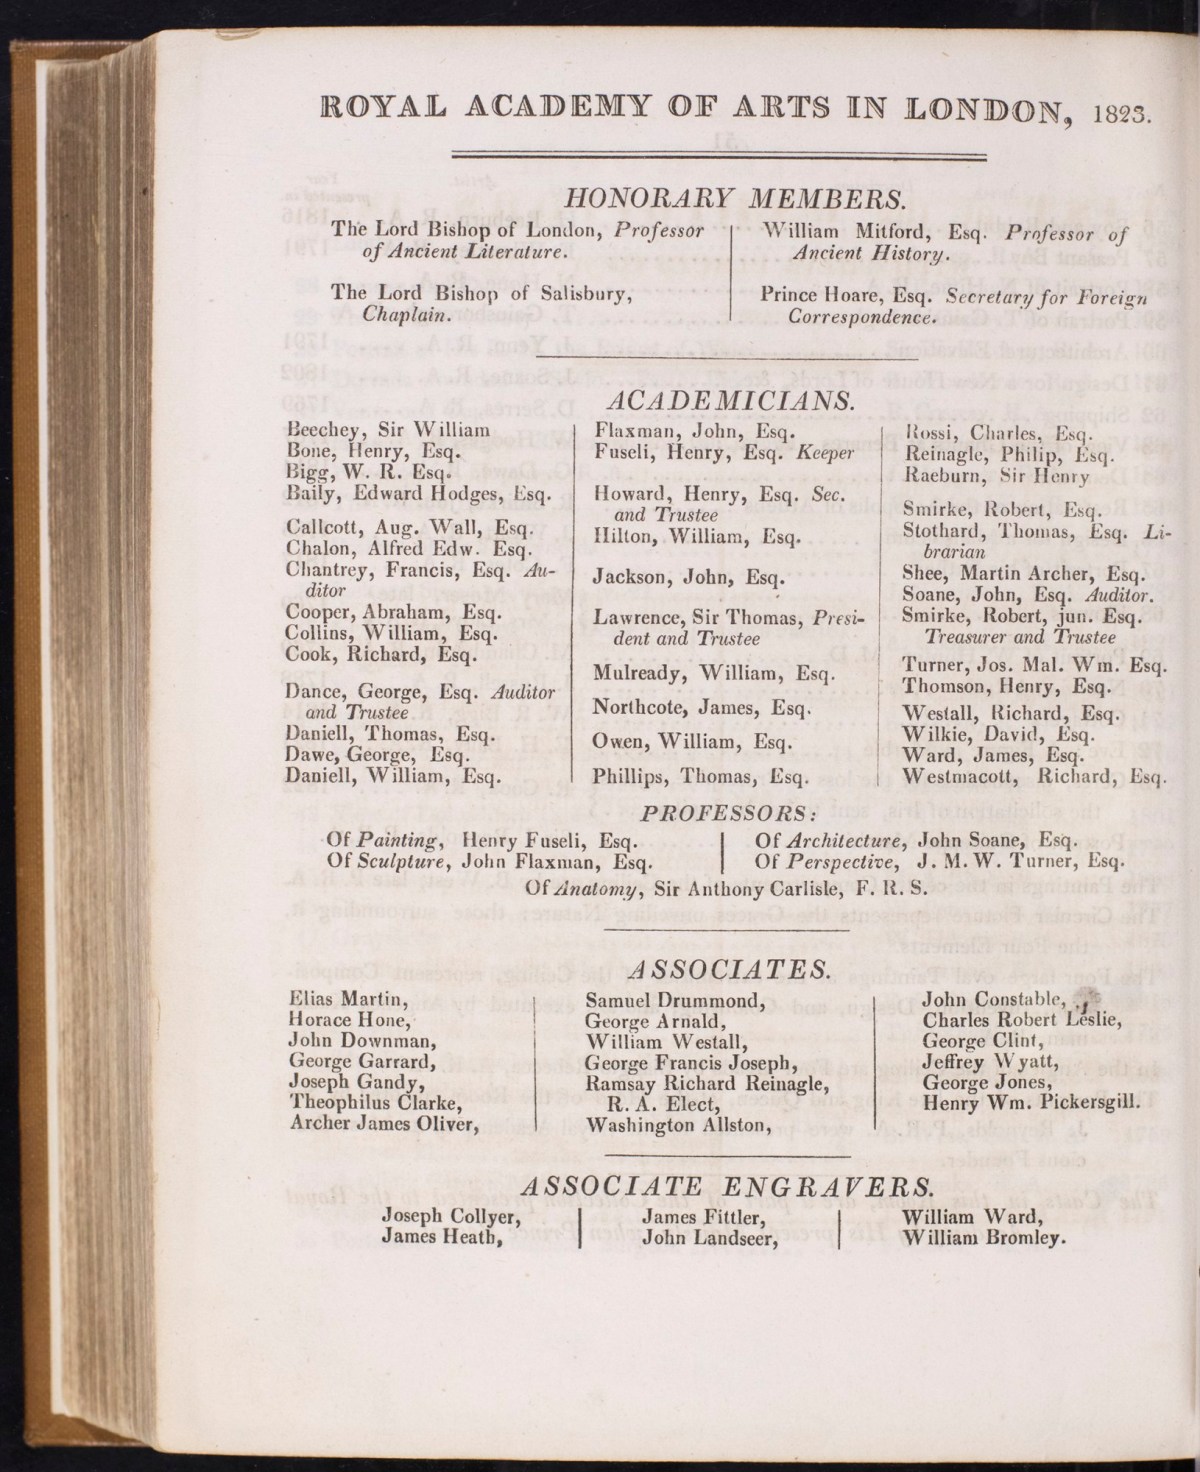 ROYAL ACADEMY OF ARTS IN LONDON, 1823.
HONORARY MEMBERS.
The Lord Bishop of London, Professor
of Ancient Literature.
The Lord Bishop of Salisbury,
Chaplain.
William Mitford, Esq. Professor of
Ancient History.
Prince Hoare, Esq. Secretary for Foreign
Correspondence.
ACADEMICIANS.
Beechey, Sir William
Bone, Henry, Esq.
Bigg, W. R. Esq.
Baily, Edward Hodges, Esq.
Callcott, Aug. Wall, Esq.
Chalon, Alfred Edw. Esq.
Chantrey, Francis, Esq. Au-
ditor
Cooper, Abraham, Esq.
Collins, William, Esq.
Cook, Richard, Esq.
Dance, George, Esq. Auditor
and Trustee
Daniell, Thomas, Esq.
Dawe, George, Esq.
Daniell, William, Esq.
Flaxman, John, Esq.
Fuseli, Henry, Esq. Keeper
Howard, Henry, Esq. Sec.
and Trustee
Hilton, William, Esq.
Jackson, John, Esq.
Lawrence, Sir Thomas, Presi-
dent and Trustee
Mulready, William, Esq.
Northcote, James, Esq.
Owen, William, Esq.
Phillips, Thomas, Esq.
Rossi, Charles, Esq.
Reinagle, Philip, Esq.
Raeburn, Sir Henry
Smirke, Robert, Esq.
Stothard, Thomas, Esq. Li-
brarian
Shee, Martin Archer, Esq.
Soane, John, Esq. Auditor.
Smirke, Robert, jun. Esq.
Treasurer and Trustee
Turner, Jos. Mal. Wm. Esq.
Thomson, Henry, Esq.
Westall, Richard, Esq.
Wilkie, David, Esq.
Ward, James, Esq.
Westmacott, Richard, Esq.
PROFESSORS:
Of Painting, Henry Fuseli, Esq.
Of Sculpture, John Flaxman, Esq.
Of Architecture, John Soane, Esq.
Of Perspective, J. M. W. Turner, Esq.
Of Anatomy, Sir Anthony Carlisle, F. R. S.
ASSOCIATES.
Elias Martin,
Horace Hone,
John Downman,
George Garrard,
Joseph Gandy,
Theophilus Clarke,
Archer James Oliver,
Samuel Drummond,
George Arnald,
William Westall,
George Francis Joseph,
Ramsay Richard Reinagle,
R. A. Elect,
Washington Allston,
John Constable,
Charles Robert Leslie,
George Clint,
Jeffrey Wyatt,
George Jones,
Henry Wm. Pickersgill.
ASSOCIATE ENGRAVERS.
Joseph Collyer,
James Heath,
James Fittler,
John Landseer,
William Ward,
William Bromley.